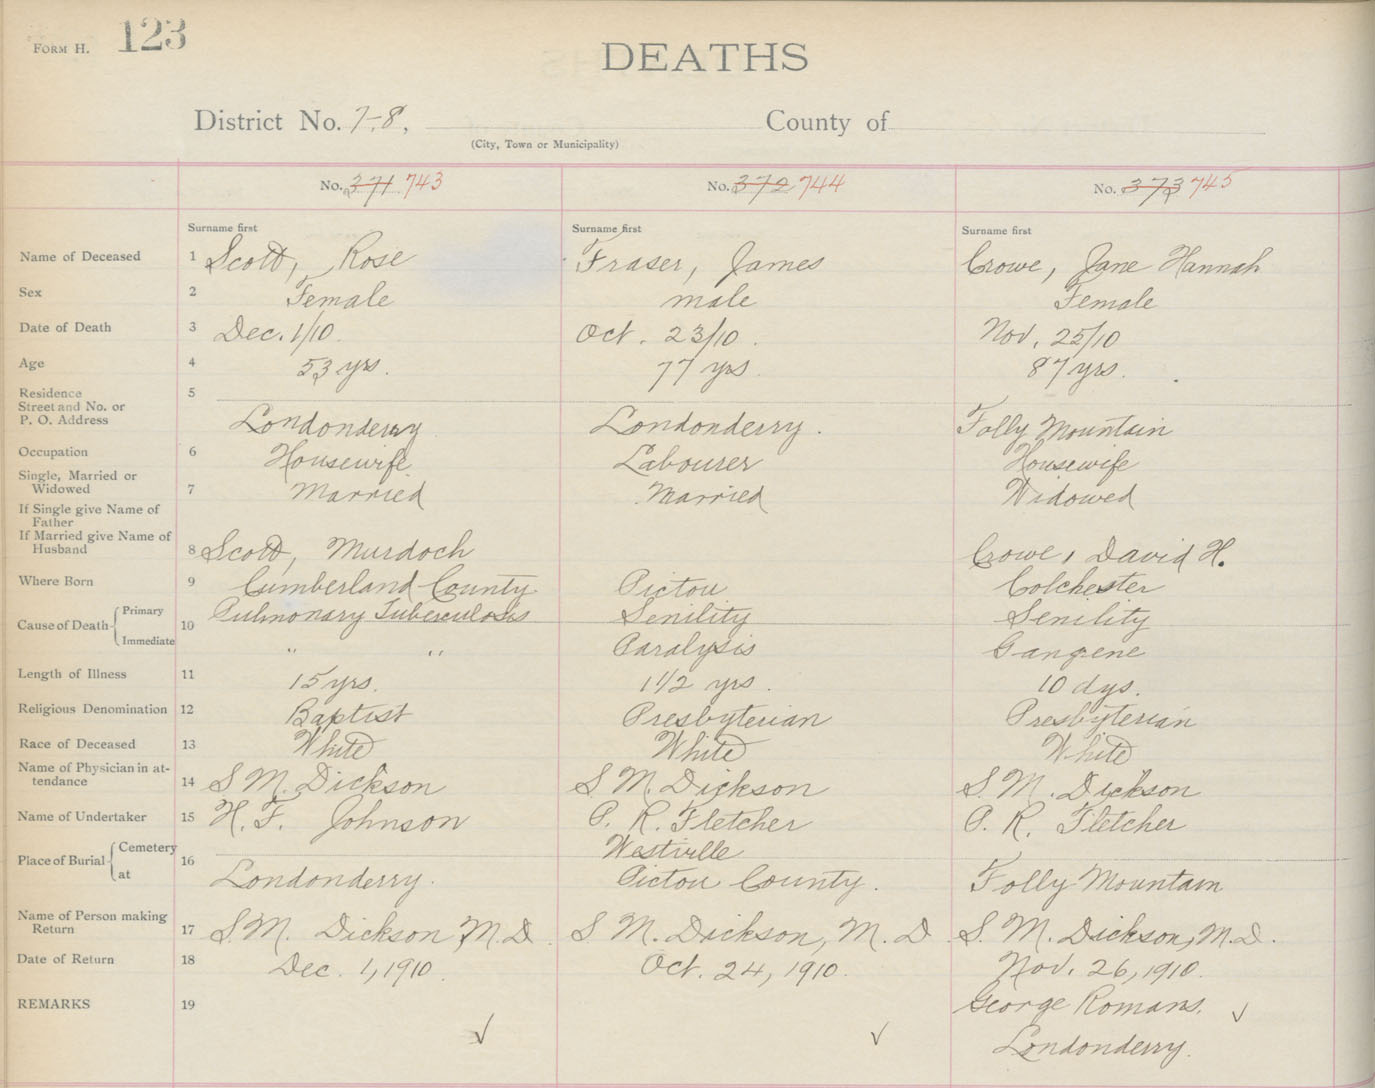 FORM H. 123
DEATHS
District No. 7-8, County of
(City, Town or Municipality)
No. 371 743 No. 372 744 No. 373 745
Surname first Surname first Surname first
Name of Deceased 1 Scott, Rose Fraser, James Crowe, Jane Hannah
Sex 2 Female male Female
Date of Death 3 Dec. 1/10. Oct. 23/10. Nov. 25/10
Age 4 53 yrs. 77 yrs. 87 yrs.
Residence 5
Street and No. or
P. O. Address Londonderry Londonderry. Folly Mountain
Occupation 6 Housewife Labourer Housewife
Single, Married or
Widowed 7 Married Married Widowed
If Single give Name of
Father
If Married give Name of
Husband 8 Scott, Murdoch Crowe, David H.
Where Born 9 Cumberland County Pictou Colchester
Cause of Death 10 Primary Pulmonary Tuberculosis Senility Senility
Immediate " " Paralysis Gangene
Length of Illness 11 15 yrs. 1 1/2 yrs. 10 dys.
Religious Denomination 12 Baptist Presbyterian Presbyterian
Race of Deceased 13 White White White
Name of Physician in at-
tendance 14 S M. Dickson S M. Dickson S. M. Dickson
Name of Undertaker 15 H. F. Johnson P. R. Fletcher P. R. Fletcher
Place of Burial 16 Cemetery Westville
at Londonderry. Pictou County. Folly Mountain
Name of Person making
Return 17 S. M. Dickson, M. D. S M. Dickson, M. D S. M. Dickson, M.D.
Date of Return 18 Dec. 1, 1910. Oct. 24, 1910. Nov. 26, 1910.
REMARKS 19 George Romans. ✓
✓ ✓ Londonderry.